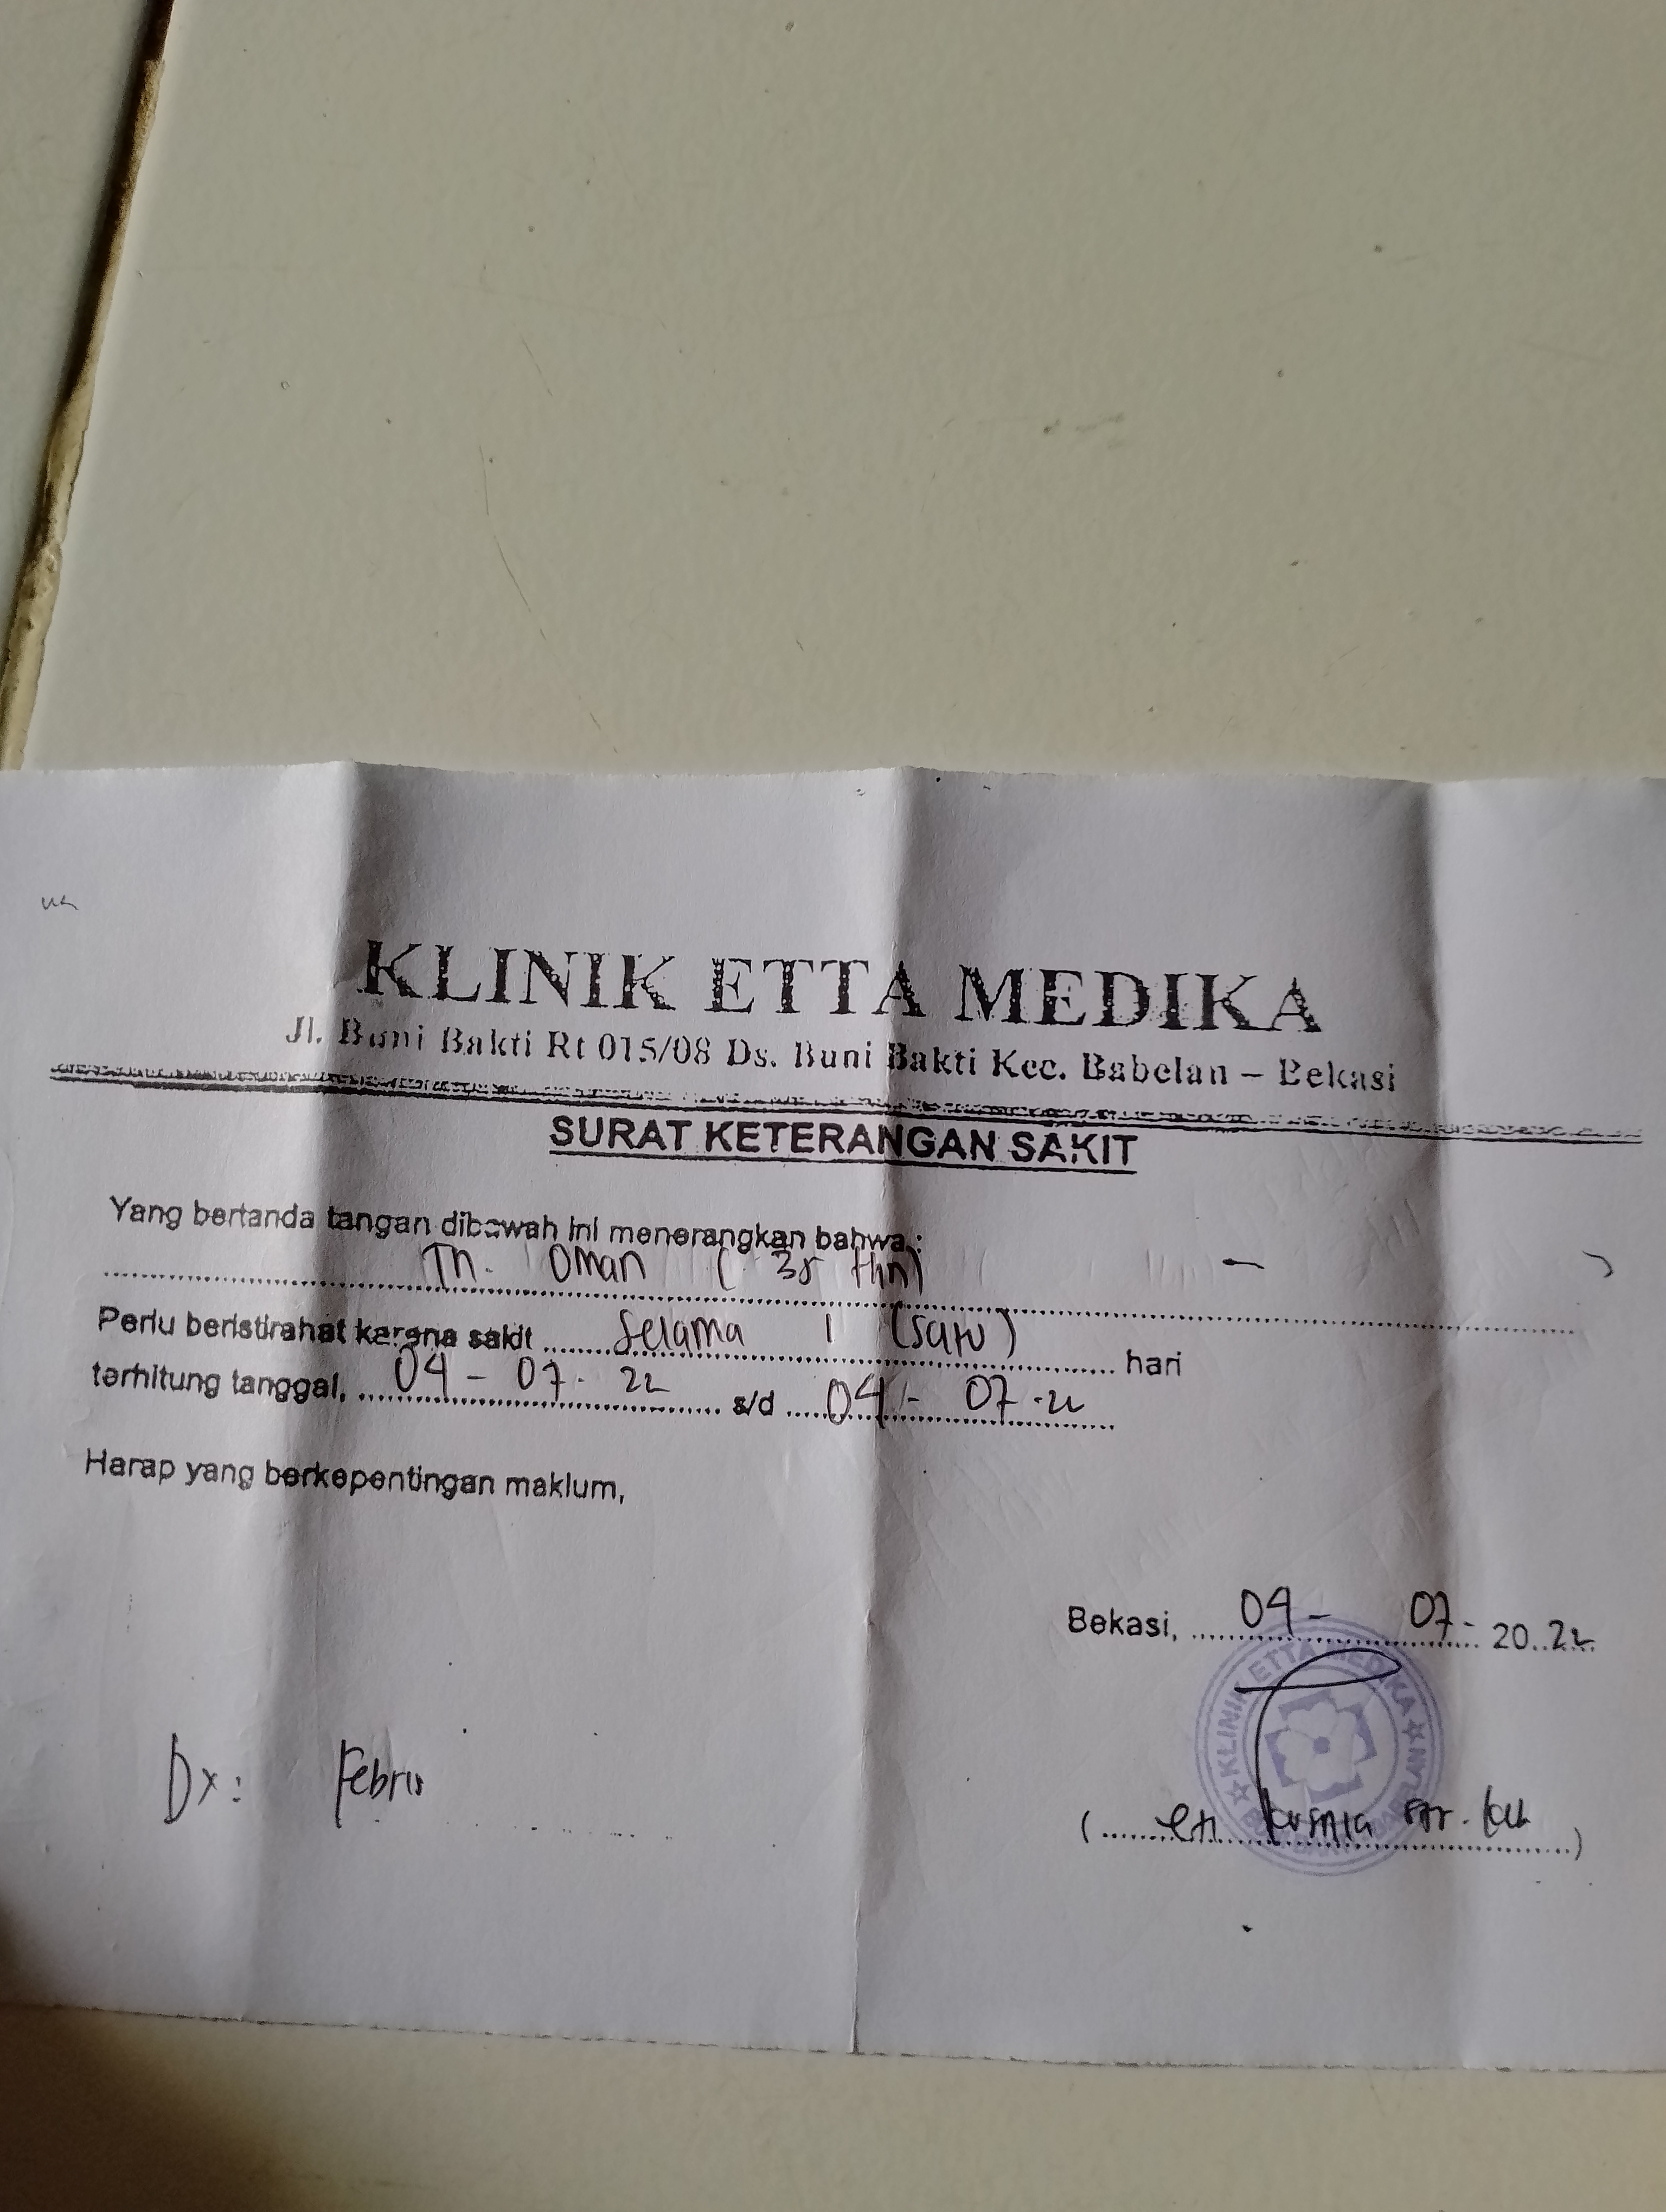 KLINIK ETTA MEDIKA
Jl. Buni Bakti Rt 015/08 Ds. Buni Bakti Kec. Babelan – Bekasi
SURAT KETERANGAN SAKIT
Yang bertanda tangan dibawah ini menerangkan bahwa :
Tn. Oman ( 38 thn)
Perlu beristirahat karena sakit selama 1 (satu) hari
terhitung tanggal, 04 - 07 - 22 s/d 04 - 07 - 22
Harap yang berkepentingan maklum,
Bekasi, 04 - 07 - 2022
KLINIK ETTA MEDIKA
Dx : Febris
( eti kusnia )